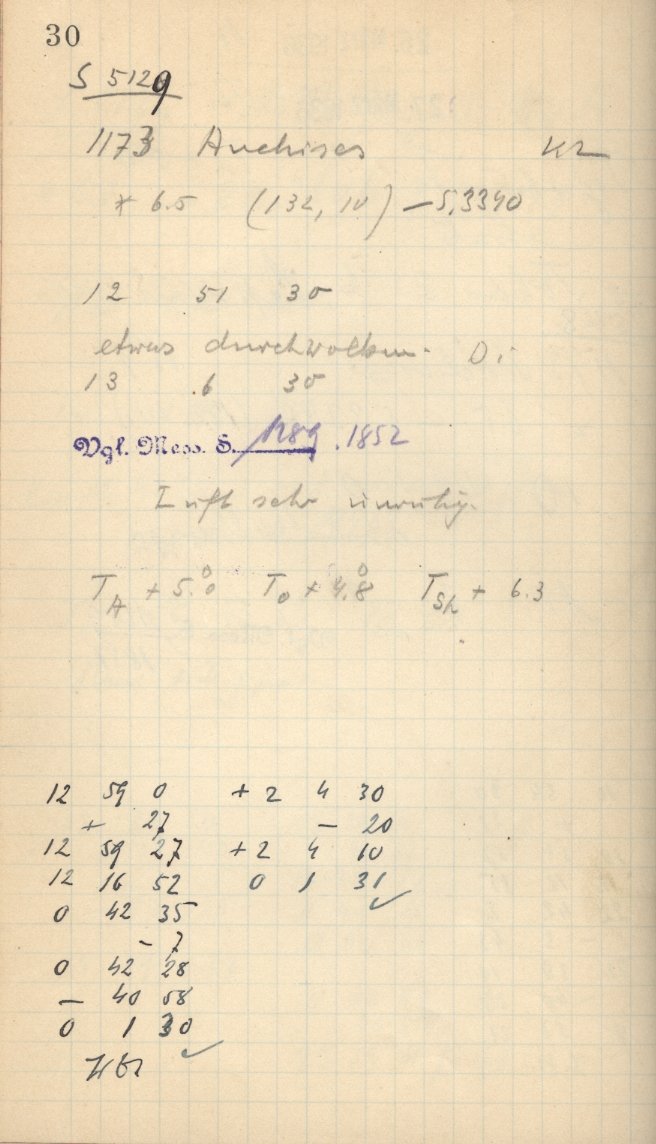 30
S 5129
1173 Anchises Kr
* 6.5 (132, 10) - 5,3340
12 51 30
etwas durchwolken. Di
13 6 30
Vgl. Mess. S. 1852
Luft sehr unruhig.
T_A + 5.°0 T_O + 4.°8 T_Sk + 6.3
12 59 0 + 2 4 30
+ 27 - 20
12 59 27 + 2 4 10
12 16 52 0 1 31
0 42 35 ✓
- 7
0 42 28
- 40 58
0 1 30
✓